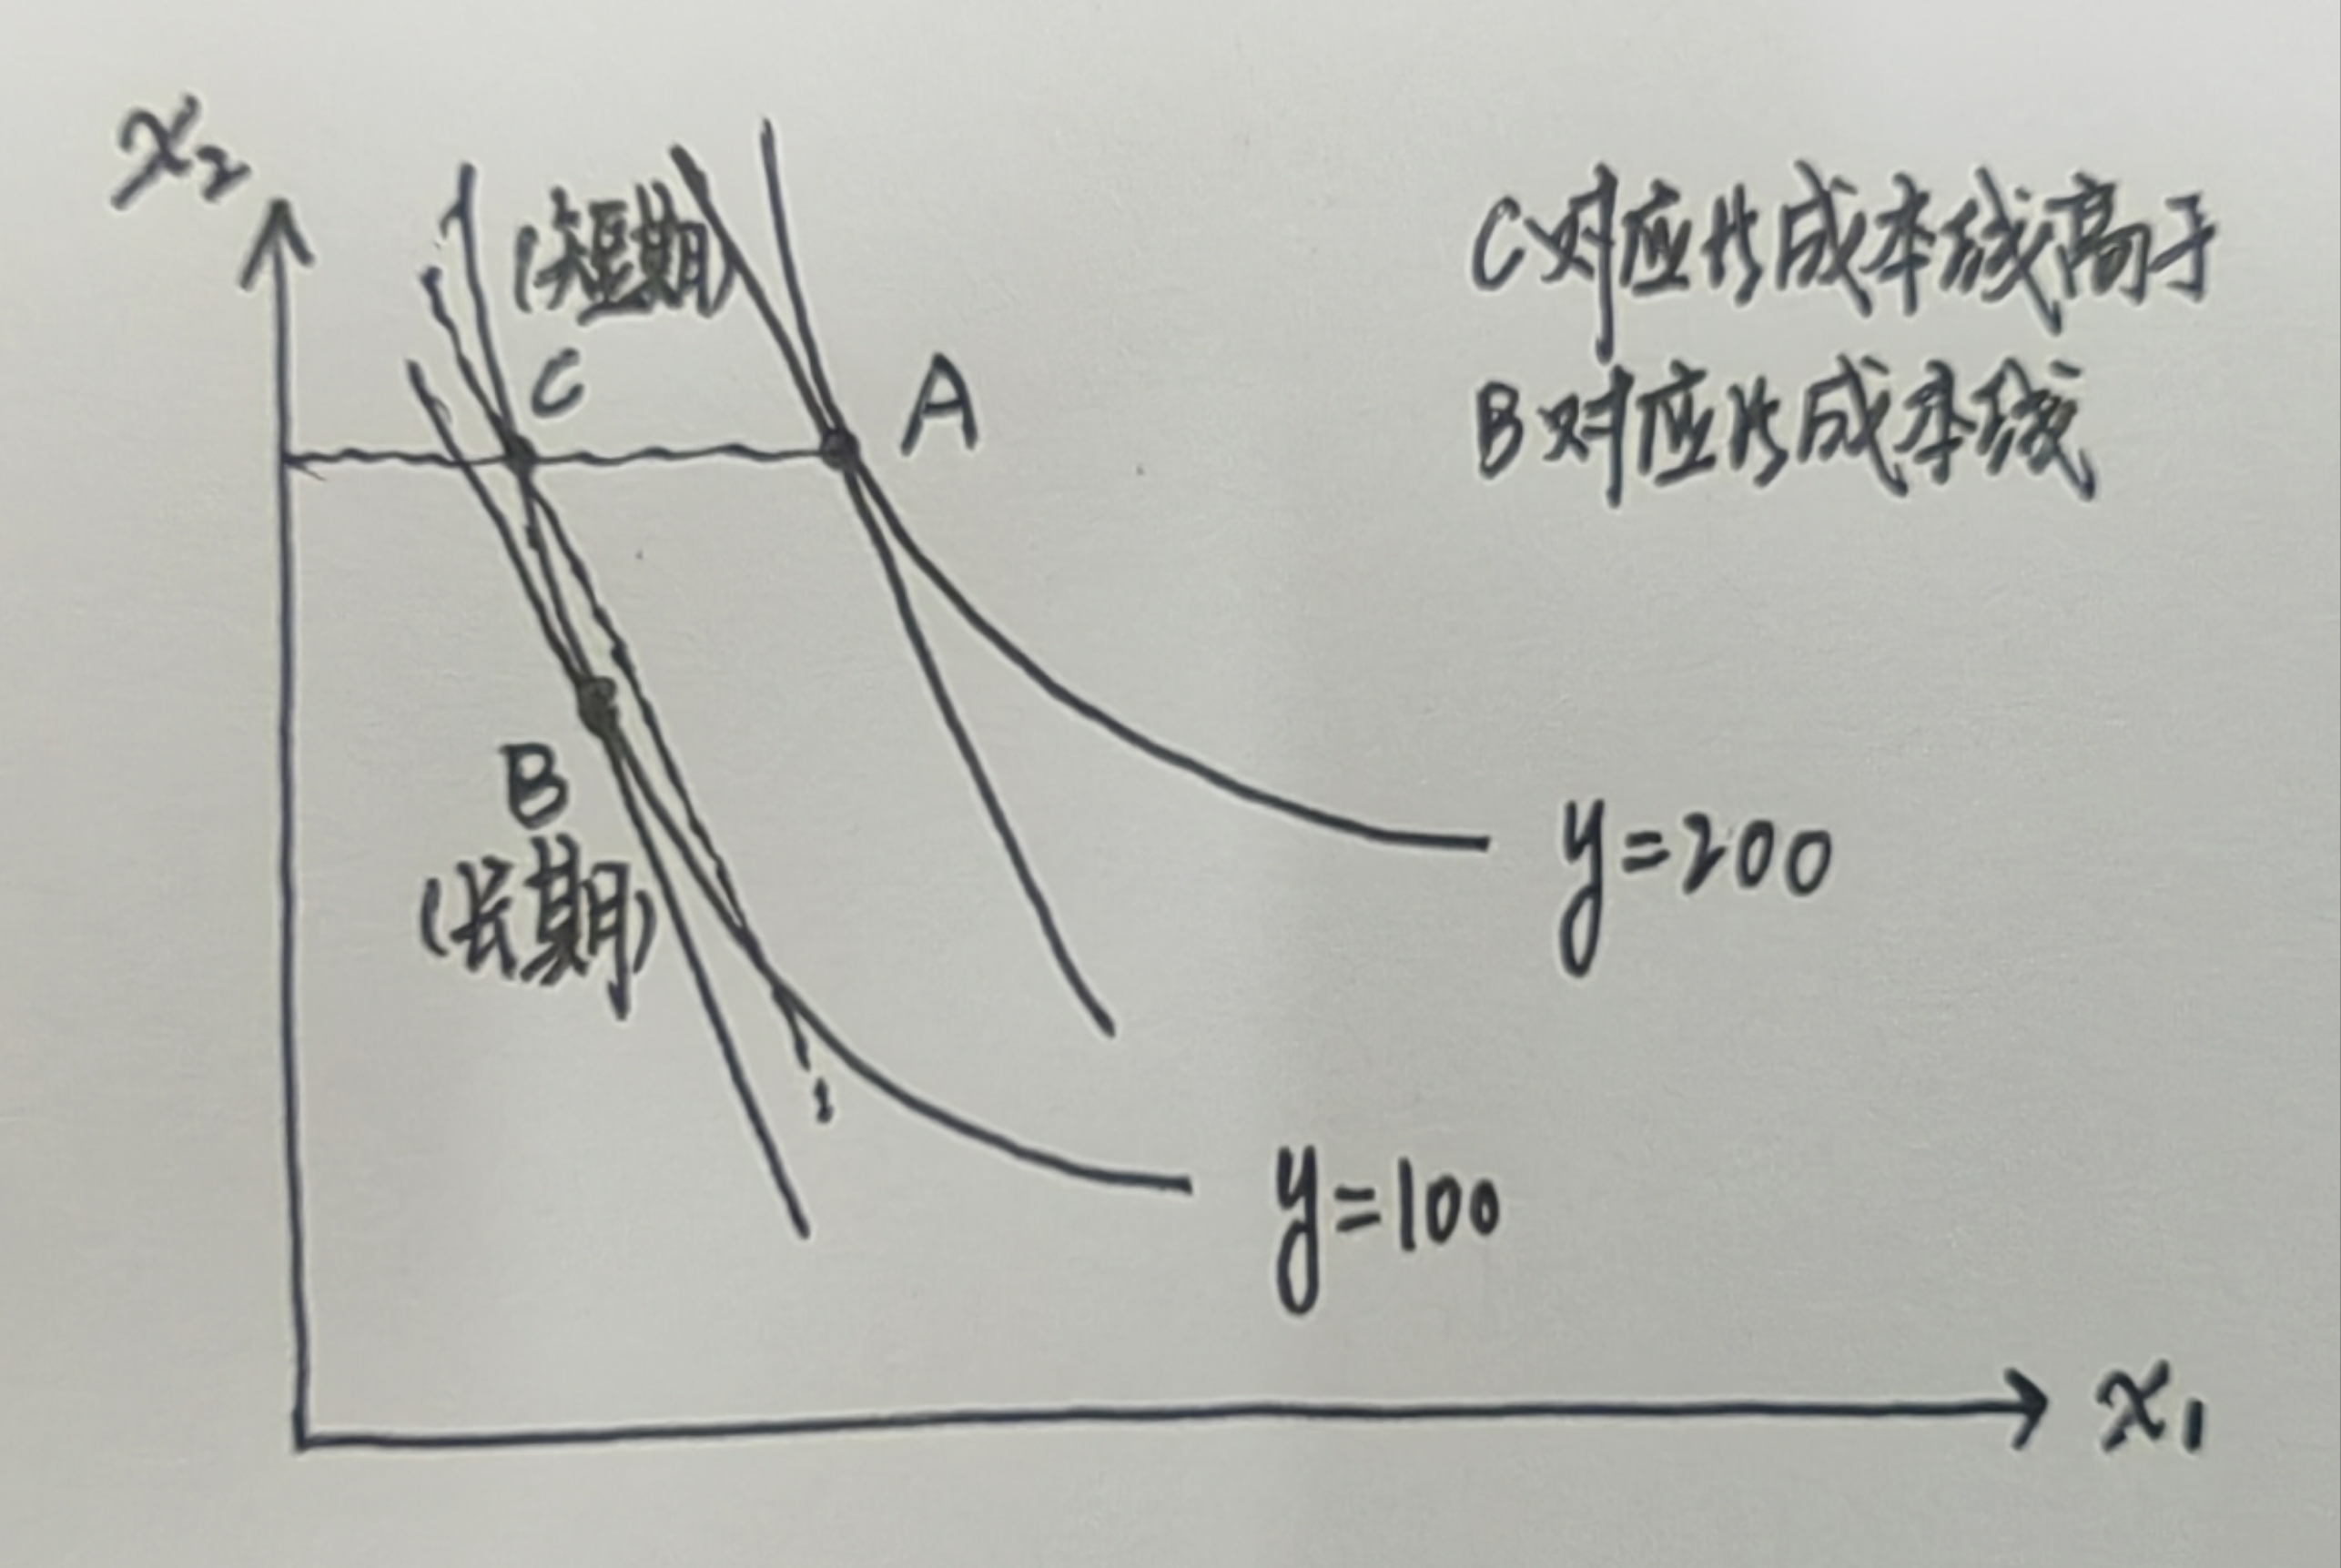 x₂
(短期)
C对应的成本线高于
C
A
B对应的成本线
B
(长期)
y=200
y=100
x₁